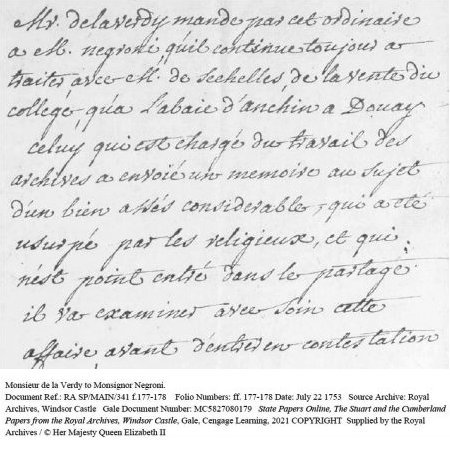 Mr. delaverdy mande par cet ordinaire
a M. negroni quil continue toujour a
traiter avec M. de sechelles, de la vente du
college, qu'a l'abaie d'anchin a Douay
celuy qui est chargé du travail des
archives a envoié un memoire au sujet
d'un bien assés considerable, qui a eté
usurpé par les religieux, et qui
nest point entré dans le partage
il va examiner avec soin cette
affaire avant d'entrer en contestation
Monsieur de la Verdy to Monsignor Negroni.
Document Ref.: RA SP/MAIN/341 f.177-178 Folio Numbers: ff. 177-178 Date: July 22 1753 Source Archive: Royal
Archives, Windsor Castle Gale Document Number: MC5827080179 State Papers Online, The Stuart and the Cumberland
Papers from the Royal Archives, Windsor Castle, Gale, Cengage Learning, 2021 COPYRIGHT Supplied by the Royal
Archives / © Her Majesty Queen Elizabeth II